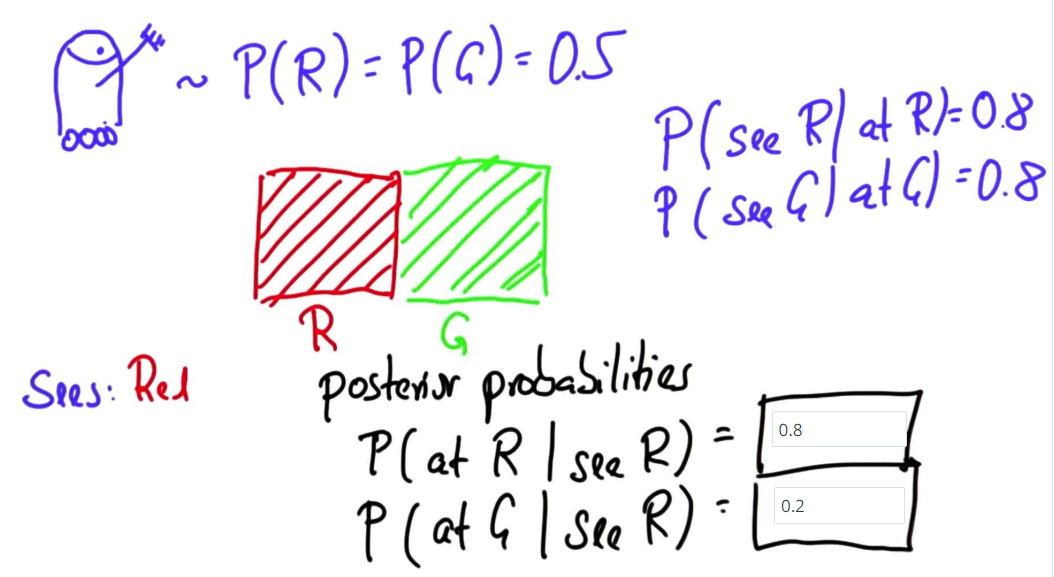 ~ P(R) = P(G) = 0.5
P( see R | at R) = 0.8
P ( see G | at G) = 0.8
R G
Sees: Red
posterior probabilities
P( at R | see R) = 0.8
P ( at G | see R) = 0.2